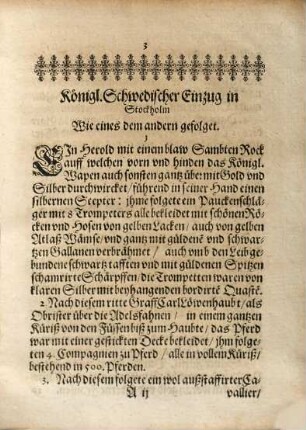 3
Königl. Schwedischer Einzug in
Stockholm
Wie eines dem andern gefolget.
1
EIn Herold mit einem blaw Sambten Rock
auff welchen vorn und hinden das Königl.
Wapen auch sonsten gantz über mit Gold und
Silber durchwircket / führend in seiner Hand einen
silbernen Scepter: ihme folgete ein Pauckenschlä-
ger mit 8 Trompeters alle bekleidet mit schönen Rö-
cken und Hosen von gelben Lacken / auch von gelben
Atlaß Wämse / und gantz mit güldene und schwar-
tzen Gallanen verbrähmet / auch umb den Leib ge-
bundene schwartz tafften und mit güldenen Spitzen
schamrirte Schärpffen: die Trompetten waren von
klaren Silber mit beyhangenden bordirte Quaste.
2. Nach diesem ritte Graff Carl Löwenhaubt / als
Obrister über die Adelsfahnen / in einem gantzen
Küriß von den Füssen biß zum Haubte / das Pferd
war mit einer gestickten Decke bekleidet / ihm folge-
ten 4. Compagnien zu Pferd / alle in vollem Küriß /
bestehend in 500. Pferden.
3. Nach diesem folgete ein wol außstaffirter Ca-
A ij
vallier /